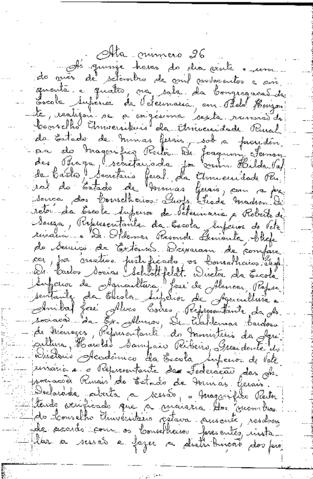 Ata número 26
Às quinze horas do dia vinte e um
do mês de setembro de mil novecentos e cin-
quenta e quatro, na sala da Congregação da
Escola Superior de Veterinária, em Belo Horizon-
te, realizou-se a vigésima sexta reunião do
Conselho Universitário da Universidade Rural
do Estado de Minas Gerais, sob a presidên-
cia do Magnífico Reitor Dr. Joaquim Fernan-
des Braga, secretariada por mim
de Castro, Secretário Geral da Universidade Ru-
ral do Estado de Minas Gerais, com a pre-
sença dos Conselheiros: Profs. Di-
retor da Escola Superior de Veterinária e Roberto de
Souza, Representante da Escola Superior de Vete-
rinária e Dr. Resende Chefe
do Serviço de Extensão. Deixaram de compare-
cer, por motivo justificado, os Conselheiros:
Dr. Carlos Socias Schlottfeldt, Diretor da Escola
Superior de Agricultura, José de Alencar, Repre-
sentante da Escola Superior de Agricultura e
Anibal José Alves Torres, Representante da As-
sociação de Ex-Alunos, Dr. Waldemar Cardoso
de Menezes, Representante do Ministério da Agri-
cultura, Haroldo Sampaio Ribeiro, Presidente do
Diretório Acadêmico da Escola Superior de Vete-
rinária e o Representante da Federação das As-
sociações Rurais do Estado de Minas Gerais.
Declarada aberta a sessão, o Magnífico Reitor
tendo verificado que a maioria dos membros
do Conselho Universitário estava presente, resolveu
de acordo com os Conselheiros presentes, insta-
lar a sessão e fazer a distribuição dos pro